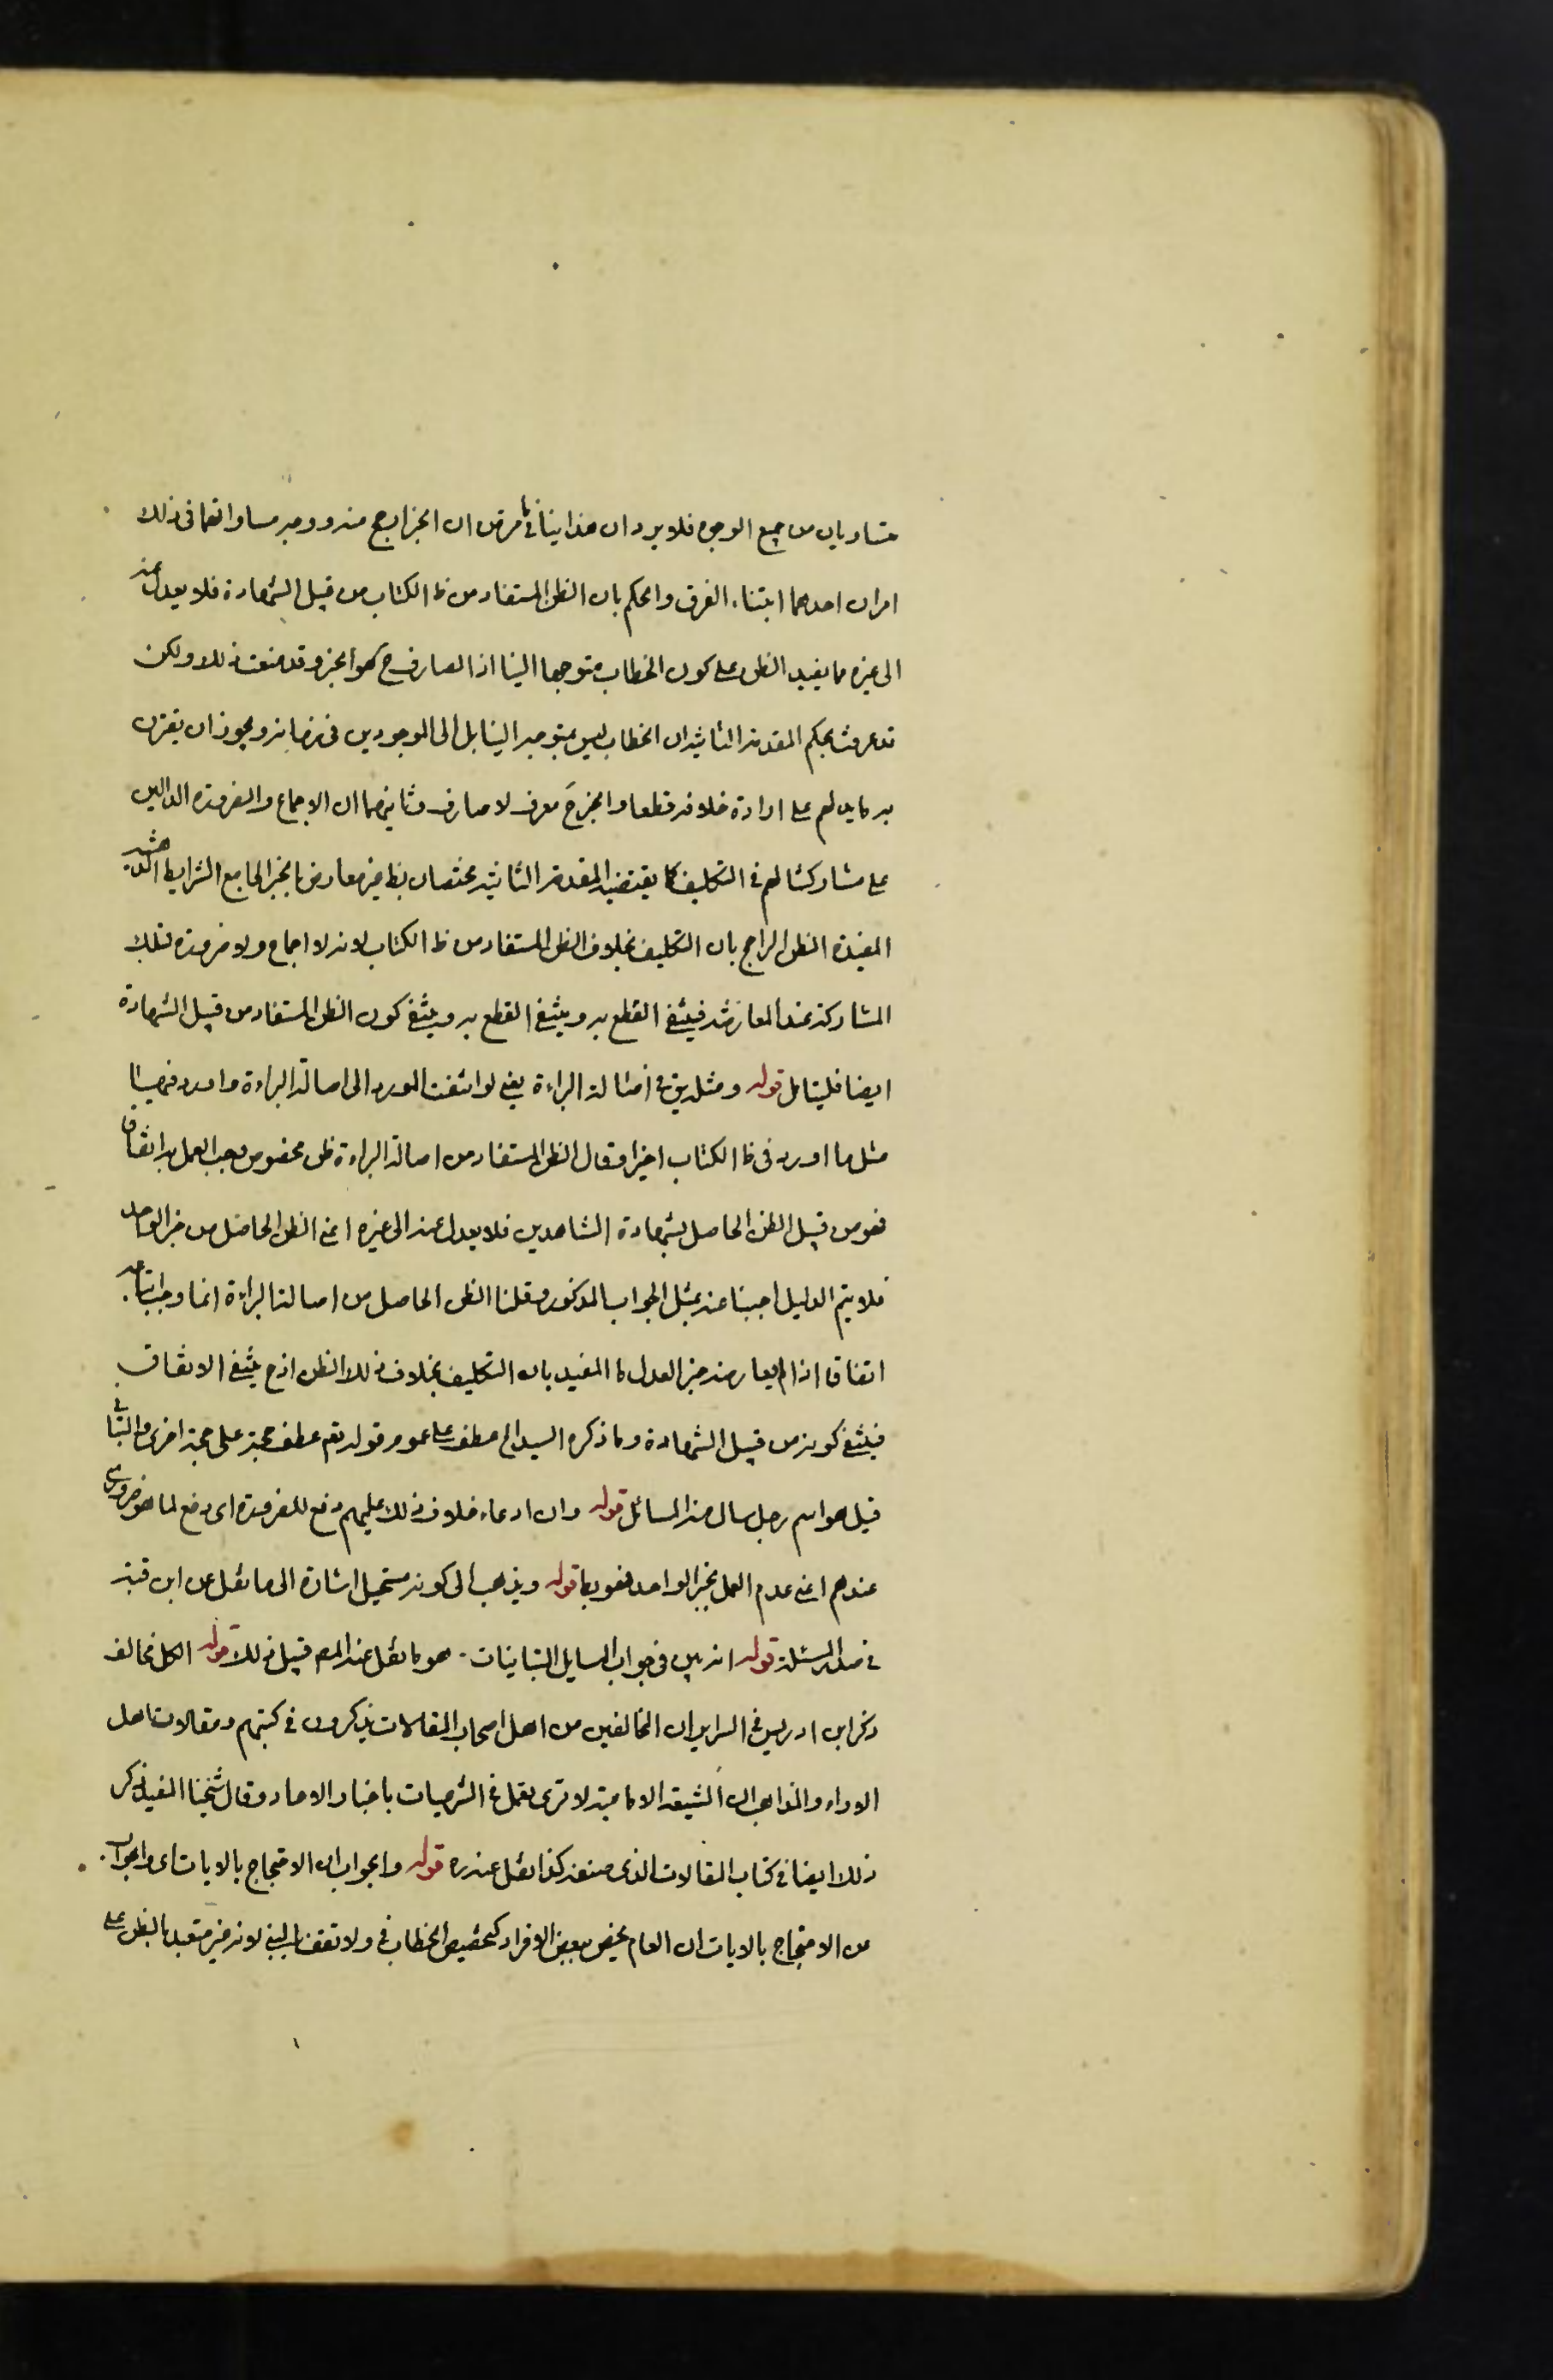 متساويان من جميع الوجوه فلا يرد ان هذا ينافي ما مر من ان الخبر ارجح منه ووجه مساواتهما في ذلك
امران احدهما ابتناء الفرق والحكم بان الظن المستفاد من ظ الكتاب من قبيل الشهادة فلا يعدل عنه
الى غيره مما يفيد الظن على كون الخطاب متوجها الينا اذ الصارف ح هو الخبر وقد منعت ذلك ولكن
قد عرفت بحكم المقدمة الثانية ان الخطاب ليس بمتوجه الينا بل الى الموجودين في زمانه ويجوز ان يقترن
به ما يدلهم على ارادة خلافه قطعا والخبر ح معرف لا صارف وثانيهما ان الاجماع والضرورة الدالين
على مشاركتنا لهم في التكليف كما يقتضيه المقدمة الثانية مختصان بظ غير معارض بالخبر الجامع الشرايط
المفيدة الظن الراجح بان التكليف بخلاف الظن المستفاد من ظ الكتاب لانه لا اجماع ولا ضرورة لتلك
المشاركة عند المعارضة فينتفي القطع به وينتفي القطع به وينتفي كون الظن المستفاد من قبيل الشهادة
ايضا فليتامل قوله ومثله يق في اصالة البراءة يعني لو التفت المورد الى اصالة البراءة واورد فيها
مثل ما اورد في ظ الكتاب اخيرا وقال الظن المستفاد من اصالة البراءة ظن مخصوص يجب العمل به اتفاقا
فهو من قبيل الظن الحاصل بشهادة الشاهدين فلا يعدل عنه الى غيره اعني الظن الحاصل من خبر الواحد
فلا يتم الدليل اجبنا عنه بمثل الجواب المذكور وقلنا الظن الحاصل من اصالة البراءة انما وجب اتباعه
اتفاقا اذا لم يعارضه خبر العدل المفيد بان التكليف بخلاف ذلك الظن اذ ح ينتفي الاتفاق
فينتفي كونه من قبيل الشهادة وما ذكره السيد الخ عطف على عموم قوله تع عطف حجة على حجة اخرى والتباني
قيل هو اسم رجل سال هذه المسائل قوله وان ادعاء خلاف ذلك عليهم دفع للضرورة اى دفع لما هو ضرورى
عندهم اعني عدم العمل بخبر الواحد قوله ويذهب الى كونه مستحيل اشارة الى ما نقل عن ابن قبة
في هذه المسئلة قوله انه بين في جواب المسايل التبانيات هو ما نقل عنه المصـ قبيل ذلك قوله الكل مخالف
ذكر ابن ادريس في السراير ان المخالفين من اهل اصحاب المقالات يذكرون في كتبهم ومقالات اهل
الاراء والمذاهب ان الشيعة الامامية لا ترى العمل في الشرعيات باخبار الاحاد وقال شيخنا المفيد ذكر
ذلك ايضا في كتاب المقالات الذى صنفه كذا نقل عنه ره قوله والجواب ان الاحتجاج بالايات اى والجواب
من الاحتجاج بالايات ان العام يخص ببعض الافراد كتخصيص الخطاب في ولا تقف بالنبي لانه غير متعبد بالظن على